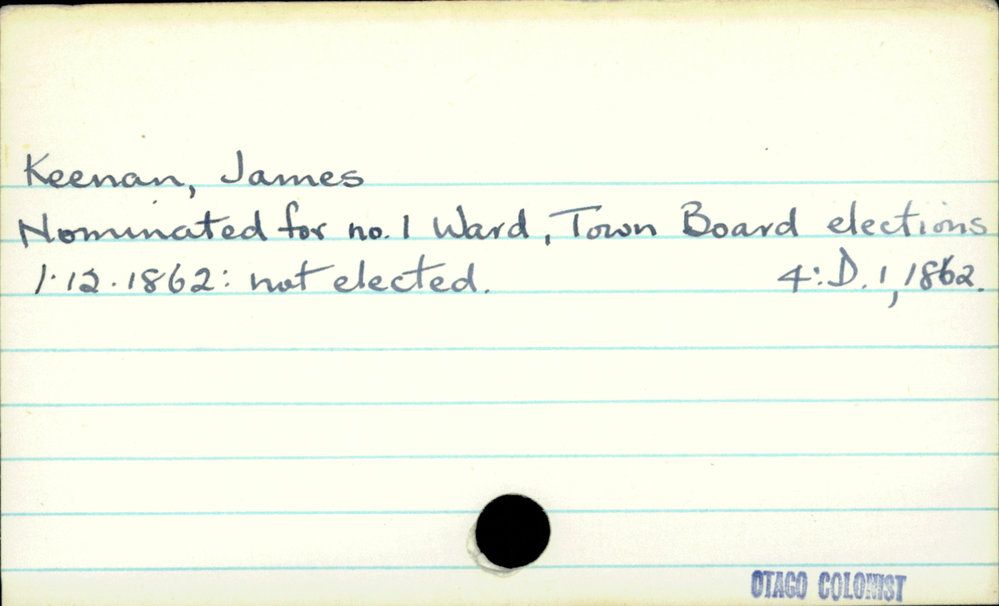 Keenan, James
Nominated for no. 1 Ward, Town Board elections
1.12.1862: not elected. 4:D. 1, 1862.
OTAGO COLONIST